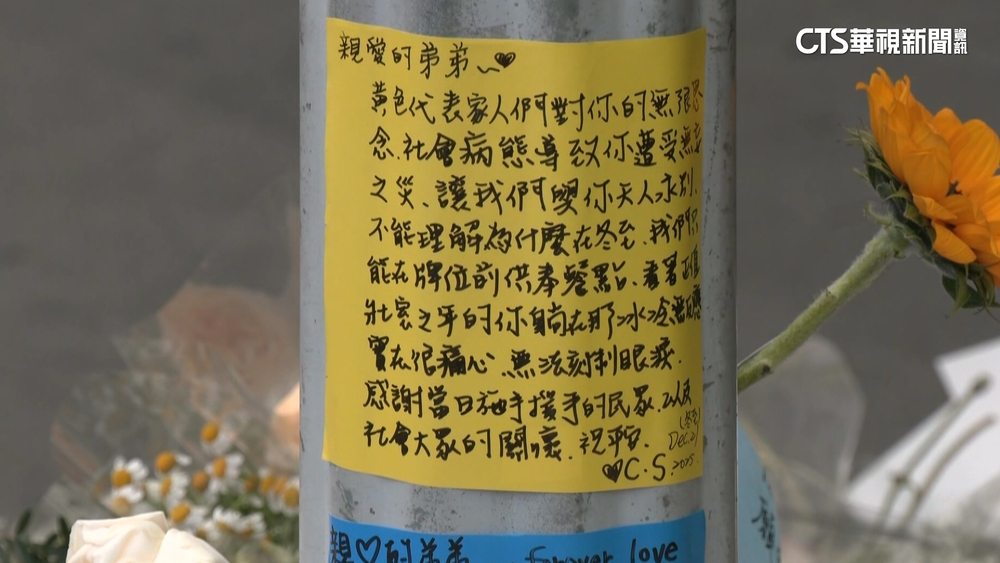 CTS華視新聞資訊
親愛的弟弟~♡
黃色代表家人們對你的無限思
念.社會病態導致你遭受無妄
之災、讓我們與你天人永別、
不能理解為什麼在冬至、我們只
能在牌位前供奉餐點、看著正值
壯家之年的你躺在那冰冷
實在很痛心、無法刻制眼淚.
感謝當日施予援手的民眾.以及
社會大眾的關懷.祝平安.
(冬至)
Dec.21
♡C.S.2025
親♡的弟弟 forever love